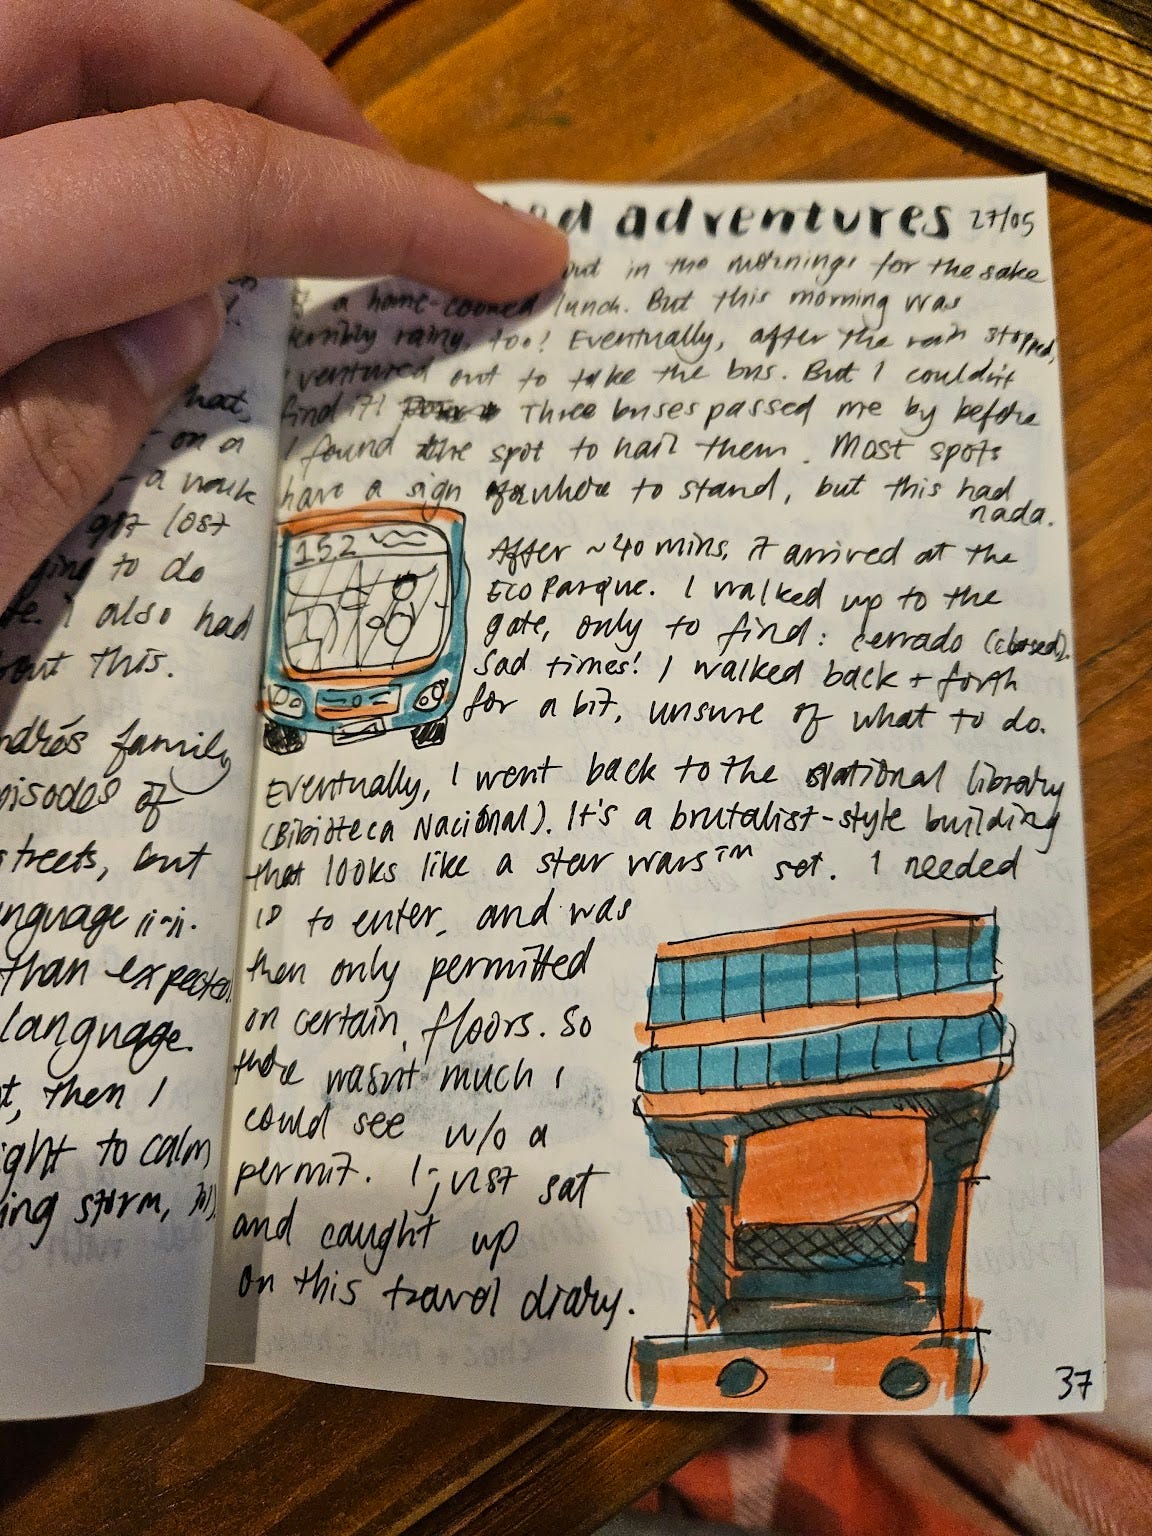 hat,
on a
a walk
got lost
to do
I also had
out this.
family
episodes of
streets, but
language
than expected
language.
then I
to calm
storm,
adventures 27/05
out in the mornings for the sake
of a home-cooked lunch. But this morning was
terribly rainy, too! Eventually, after the rain stopped,
I ventured out to take the bus. But I couldn't
find it! Three buses passed me by before
I found the spot to hail them. Most spots
have a sign for where to stand, but this had
nada.
152
After ~40 mins, it arrived at the
Eco Parque. I walked up to the
gate, only to find: cerrado (closed).
Sad times! I walked back + forth
for a bit, unsure of what to do.
Eventually, I went back to the National library
(Bibioteca Nacional). It's a brutalist-style building
that looks like a star wars™ set. I needed
ID to enter, and was
then only permitted
on certain floors. So
there wasn't much I
could see w/o a
permit. I just sat
and caught up
on this travel diary.
37